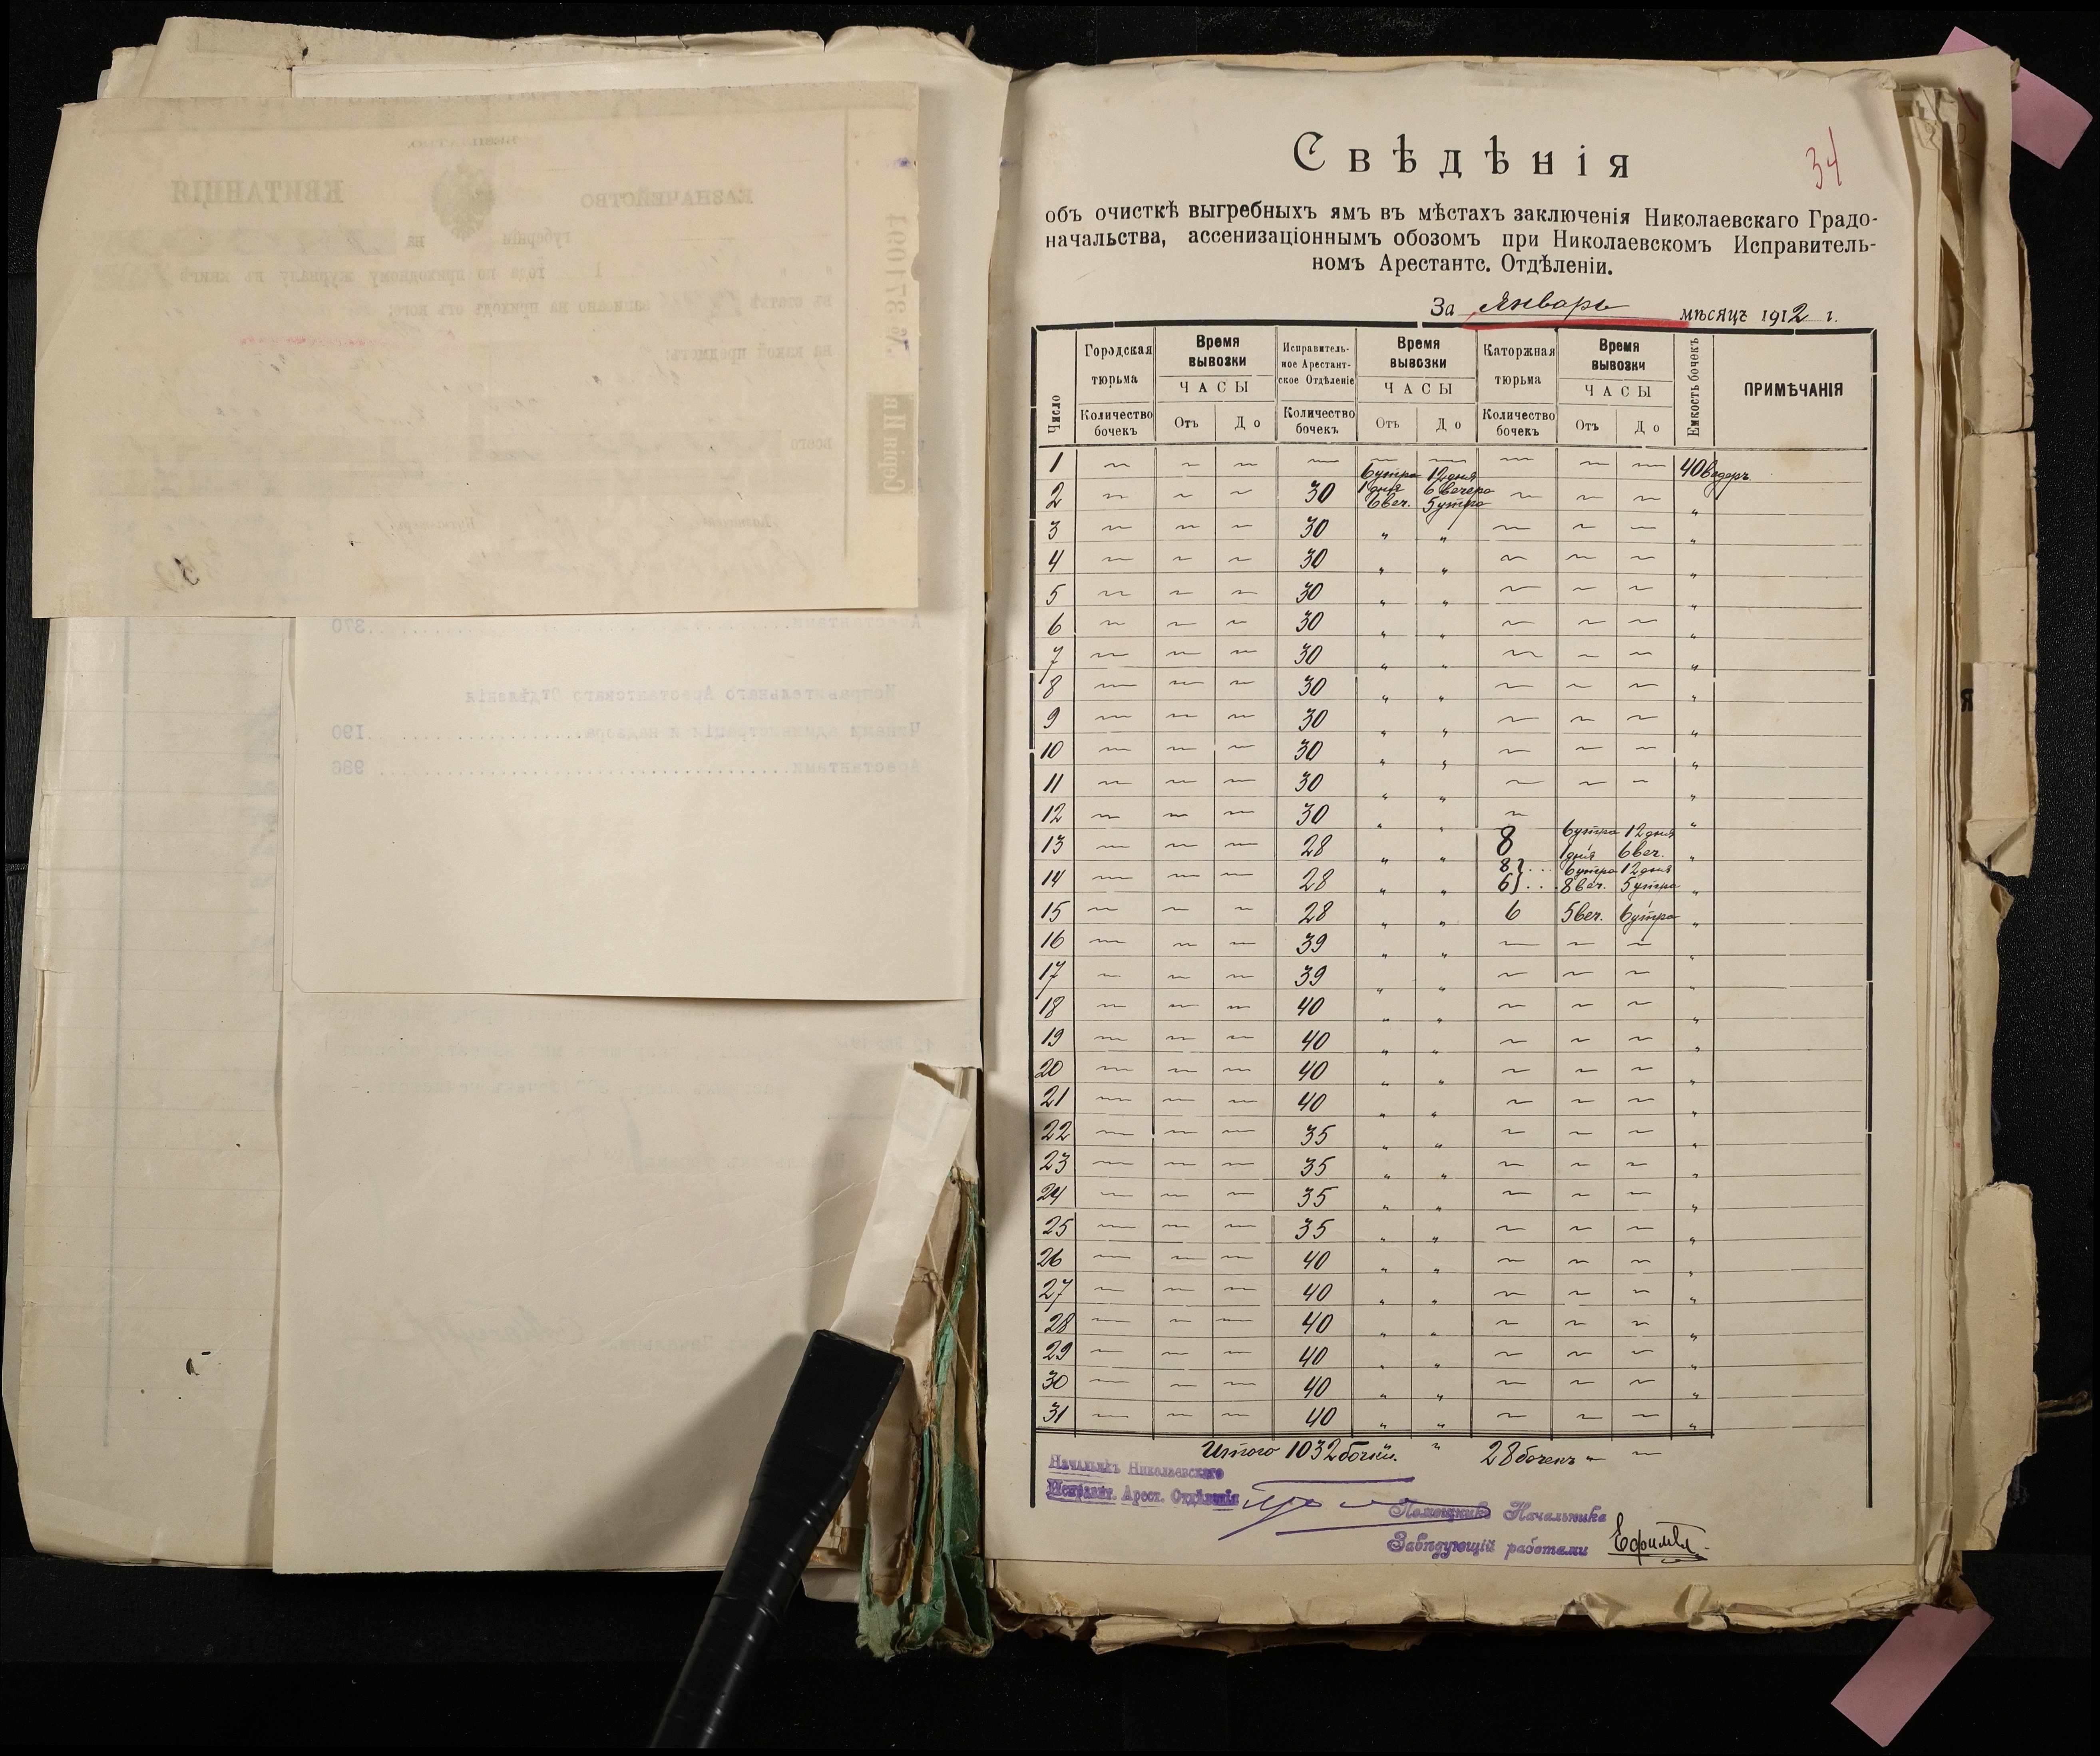 34
Свѣдѣнія
объ очисткѣ выгребныхъ ямъ въ мѣстахъ заключенія Николаевскаго Градо-
начальства, ассенизаціоннымъ обозомъ при Николаевскомъ Исправитель-
номъ Арестантс. Отдѣленіи.
За Январь мѣсяцъ 1912 г.
Число
Городская тюрьма
Время вывозки
Исправитель-ное Арестант-ское Отдѣленіе
Время вывозки
Каторжная тюрьма
Время вывозки
Емкость бочекъ
ПРИМѢЧАНІЯ
ЧАСЫ ЧАСЫ ЧАСЫ
Количество бочекъ Отъ До Количество бочекъ Отъ До Количество бочекъ Отъ До
1 — — — — — — — — — 40 ведеръ
6 утра 12 дня
2 — — — 30 1 дня 6 вечера — — — „
6 веч. 5 утра
3 — — — 30 „ „ — — — „
4 — — — 30 „ „ — — — „
5 — — — 30 „ „ — — — „
6 — — — 30 „ „ — — — „
7 — — — 30 „ „ — — — „
8 — — — 30 „ „ — — — „
9 — — — 30 „ „ — — — „
10 — — — 30 „ „ — — — „
11 — — — 30 „ „ — — — „
12 — — — 30 „ „ — „
6 утра 12 дня
13 — — — 28 „ „ 8 1 дня 6 веч. „
8 } ... 6 утра 12 дня
14 — — — 28 „ „ 6 } ... 8 веч. 5 утра „
15 — — — 28 „ „ 6 5 веч. 6 утра „
16 — — — 39 „ „ — — — „
17 — — — 39 „ „ — — — „
18 — — — 40 „ „ — — — „
19 — — — 40 „ „ — — — „
20 — — — 40 „ „ — — — „
21 — — — 40 „ „ — — — „
22 — — — 35 „ „ — — — „
23 — — — 35 „ „ — — — „
24 — — — 35 „ „ — — — „
25 — — — 35 „ „ — — — „
26 — — — 40 „ „ — — — „
27 — — — 40 „ „ — — — „
28 — — — 40 „ „ — — — „
29 — — — 40 „ „ — — — „
30 — — — 40 „ „ — — — „
31 — — — 40 „ „ — — — „
Итого 1032 бочки. „ 28 бочекъ „ —
Начальникъ Николаевскаго
Исправит. Арест. Отдѣленія
Помощникъ Начальника
Завѣдующій работами
КВИТАНЦІЯ
КАЗНАЧЕЙСТВО
губерніи на
года по приходному журналу въ книгѣ
записано на приходъ отъ кого:
на какой предметъ:
всего
Серія Ип. № 871084
Арестантами 370
Исправительнаго Арестантскаго Отдѣленія
Чинами администраціи и надзора 190
Арестантами 986